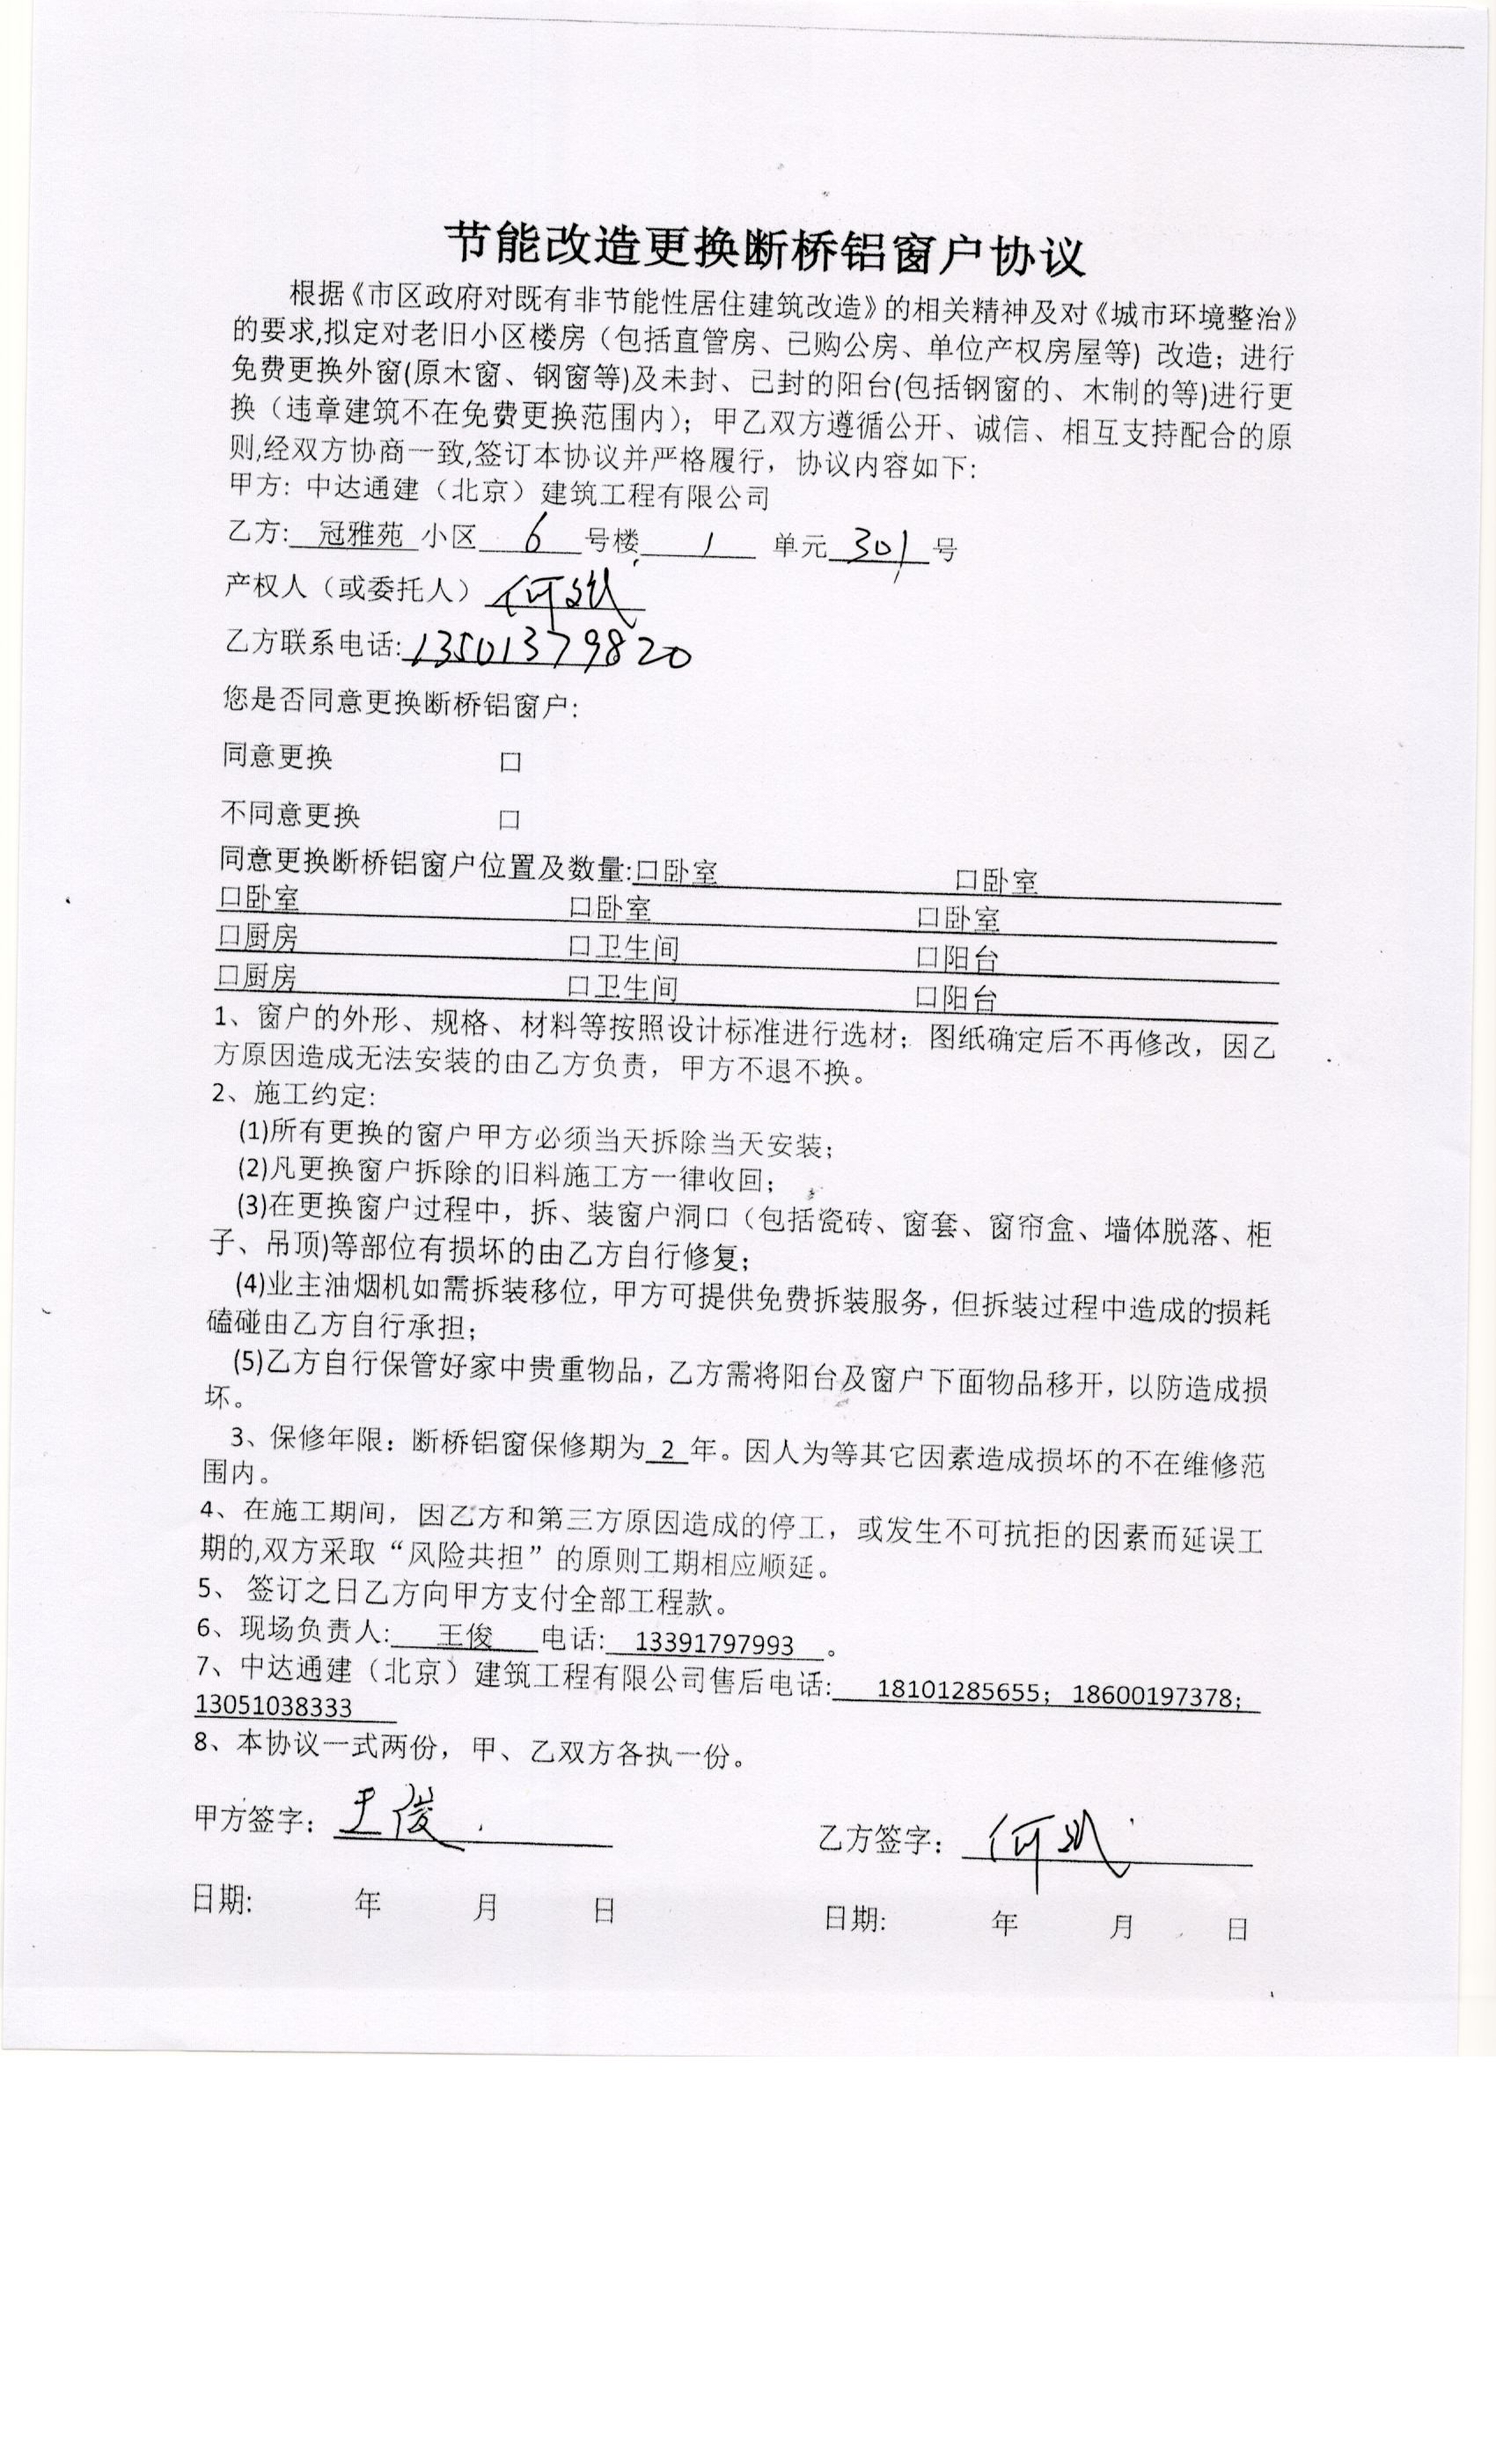 节能改造更换断桥铝窗户协议
根据《市区政府对既有非节能性居住建筑改造》的相关精神及对《城市环境整治》
的要求,拟定对老旧小区楼房（包括直管房、已购公房、单位产权房屋等）改造；进行
免费更换外窗(原木窗、钢窗等)及未封、已封的阳台(包括钢窗的、木制的等)进行更
换（违章建筑不在免费更换范围内）；甲乙双方遵循公开、诚信、相互支持配合的原
则,经双方协商一致,签订本协议并严格履行，协议内容如下：
甲方：中达通建（北京）建筑工程有限公司
乙方: 冠雅苑 小区 6 号楼 1 单元 301 号
产权人（或委托人）何
乙方联系电话: 13501379820
您是否同意更换断桥铝窗户：
同意更换 口
不同意更换 口
同意更换断桥铝窗户位置及数量:口卧室 口卧室
口卧室 口卧室 口卧室
口厨房 口卫生间 口阳台
口厨房 口卫生间 口阳台
1、窗户的外形、规格、材料等按照设计标准进行选材；图纸确定后不再修改，因乙
方原因造成无法安装的由乙方负责，甲方不退不换。
2、施工约定:
(1)所有更换的窗户甲方必须当天拆除当天安装；
(2)凡更换窗户拆除的旧料施工方一律收回；
(3)在更换窗户过程中，拆、装窗户洞口（包括瓷砖、窗套、窗帘盒、墙体脱落、柜
子、吊顶)等部位有损坏的由乙方自行修复；
(4)业主油烟机如需拆装移位，甲方可提供免费拆装服务，但拆装过程中造成的损耗
磕碰由乙方自行承担；
(5)乙方自行保管好家中贵重物品，乙方需将阳台及窗户下面物品移开，以防造成损
坏。
3、保修年限：断桥铝窗保修期为 2 年。因人为等其它因素造成损坏的不在维修范
围内。
4、在施工期间，因乙方和第三方原因造成的停工，或发生不可抗拒的因素而延误工
期的,双方采取“风险共担”的原则工期相应顺延。
5、 签订之日乙方向甲方支付全部工程款。
6、现场负责人: 王俊 电话: 13391797993 。
7、中达通建（北京）建筑工程有限公司售后电话: 18101285655；18600197378；
13051038333
8、本协议一式两份，甲、乙双方各执一份。
甲方签字：王俊 乙方签字：何
日期: 年 月 日 日期: 年 月 日